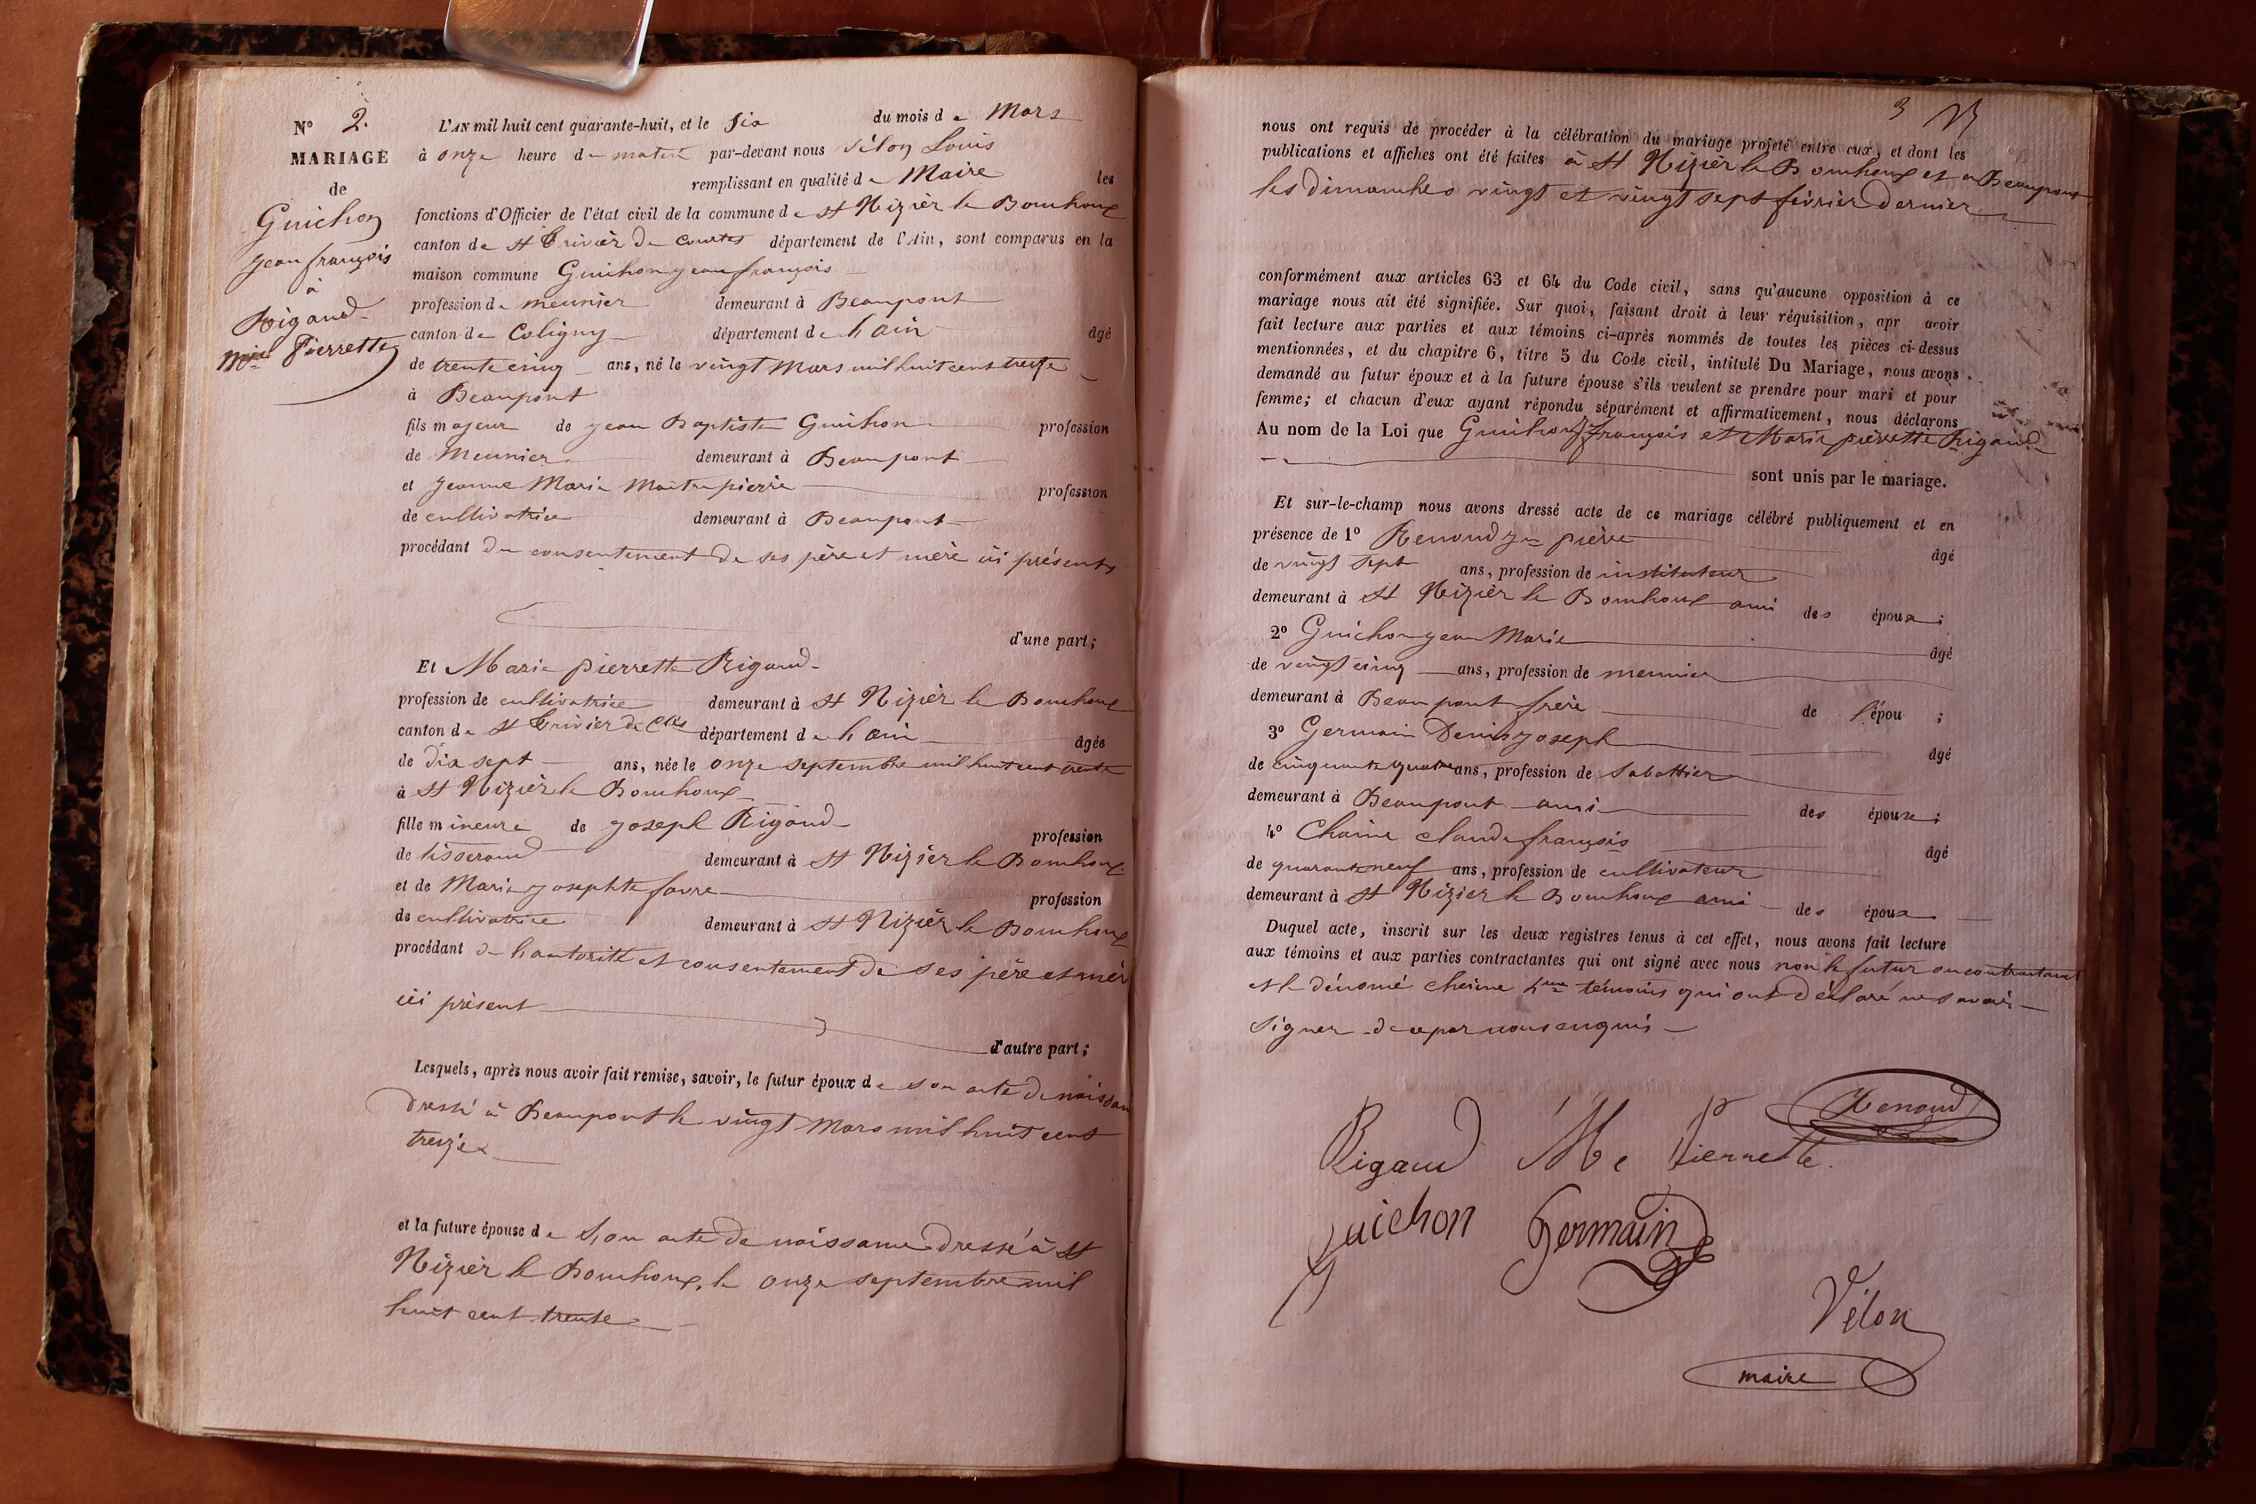 N° 2.
MARIAGE
de
Guichon
jean françois
à
Rigaud
Mie Pierrette
L'AN mil huit cent quarante-huit, et le six du mois de Mars
à onze heure du matin par-devant nous Vélon Louis
remplissant en qualité de Maire les
fonctions d'Officier de l'état civil de la commune de St Nizier le Bouchoux
canton de St Trivier de Courtes département de l'Ain, sont comparus en la
maison commune Guichon jean françois
profession de meunier demeurant à Beaupont
canton de Coligny département de l'ain âgé
de trente cinq ans, né le vingt Mars mil huit cent treize
à Beaupont
fils majeur de jean Baptiste Guichon profession
de Meunier demeurant à Beaupont
et jeanne Marie Maitrepierre profession
de cultivatrice demeurant à Beaupont
procédant du consentement de ses père et mère ici présents
d'une part;
Et Marie pierrette Rigaud
profession de cultivatrice demeurant à St Nizier le Bouchoux
canton de St Trivier de Ctes département de l'ain âgée
de dix sept ans, née le onze septembre mil huit cent trente
à St Nizier le Bouchoux
fille mineure de joseph Rigaud profession
de tisserand demeurant à St Nizier le Bouchoux
et de Marie josephte favre profession
de cultivatrice demeurant à St Nizier le Bouchoux
procédant de l'autorité et consentement de ses père et mèr
ici présent
d'autre part;
Lesquels, après nous avoir fait remise, savoir, le futur époux de son acte de naissan
dressé à Beaupont le vingt Mars mil huit cent
treize
et la future épouse de Son acte de naissance dressé à St
Nizier le Bouchoux, le onze septembre mil
huit cent trente
3
nous ont requis de procéder à la célébration du mariage projeté entre eux, et dont les
publications et affiches ont été faites à St Nizier le Bouchoux et a Beaupont
les dimanches vingt et vingt sept février dernier
conformément aux articles 63 et 64 du Code civil, sans qu'aucune opposition à ce
mariage nous ait été signifiée. Sur quoi, faisant droit à leur réquisition, apr avoir
fait lecture aux parties et aux témoins ci-après nommés de toutes les pièces ci-dessus
mentionnées, et du chapitre 6, titre 5 du Code civil, intitulé Du Mariage, nous avons
demandé au futur époux et à la future épouse s'ils veulent se prendre pour mari et pour
femme; et chacun d'eux ayant répondu séparément et affirmativement, nous déclarons
Au nom de la Loi que Guichon jn françois et Marie pierrette Rigaud
sont unis par le mariage.
Et sur-le-champ nous avons dressé acte de ce mariage célébré publiquement et en
présence de 1° Renoud jn pierre âgé
de vingt sept ans, profession de instituteur
demeurant à St Nizier le Bouchoux ami des époux;
2° Guichon jean Marie âgé
de vingt cinq ans, profession de meunier
demeurant à Beaupont frère de l'épou;
3° Germain Denis joseph âgé
de cinquante quatre ans, profession de sabottier
demeurant à Beaupont ami des époux;
4° Chaine claude françois âgé
de quarante neuf ans, profession de cultivateur
demeurant à St Nizier le Bouchoux ami des époux
Duquel acte, inscrit sur les deux registres tenus à cet effet, nous avons fait lecture
aux témoins et aux parties contractantes qui ont signé avec nous non le futur
et le dénomé cheine 4me témoins qui ont déclaré ne savoir
signer de ce par nous enquis
Renoud
Rigaud Me Pierrette
Guichon Germain
Vélon
maire